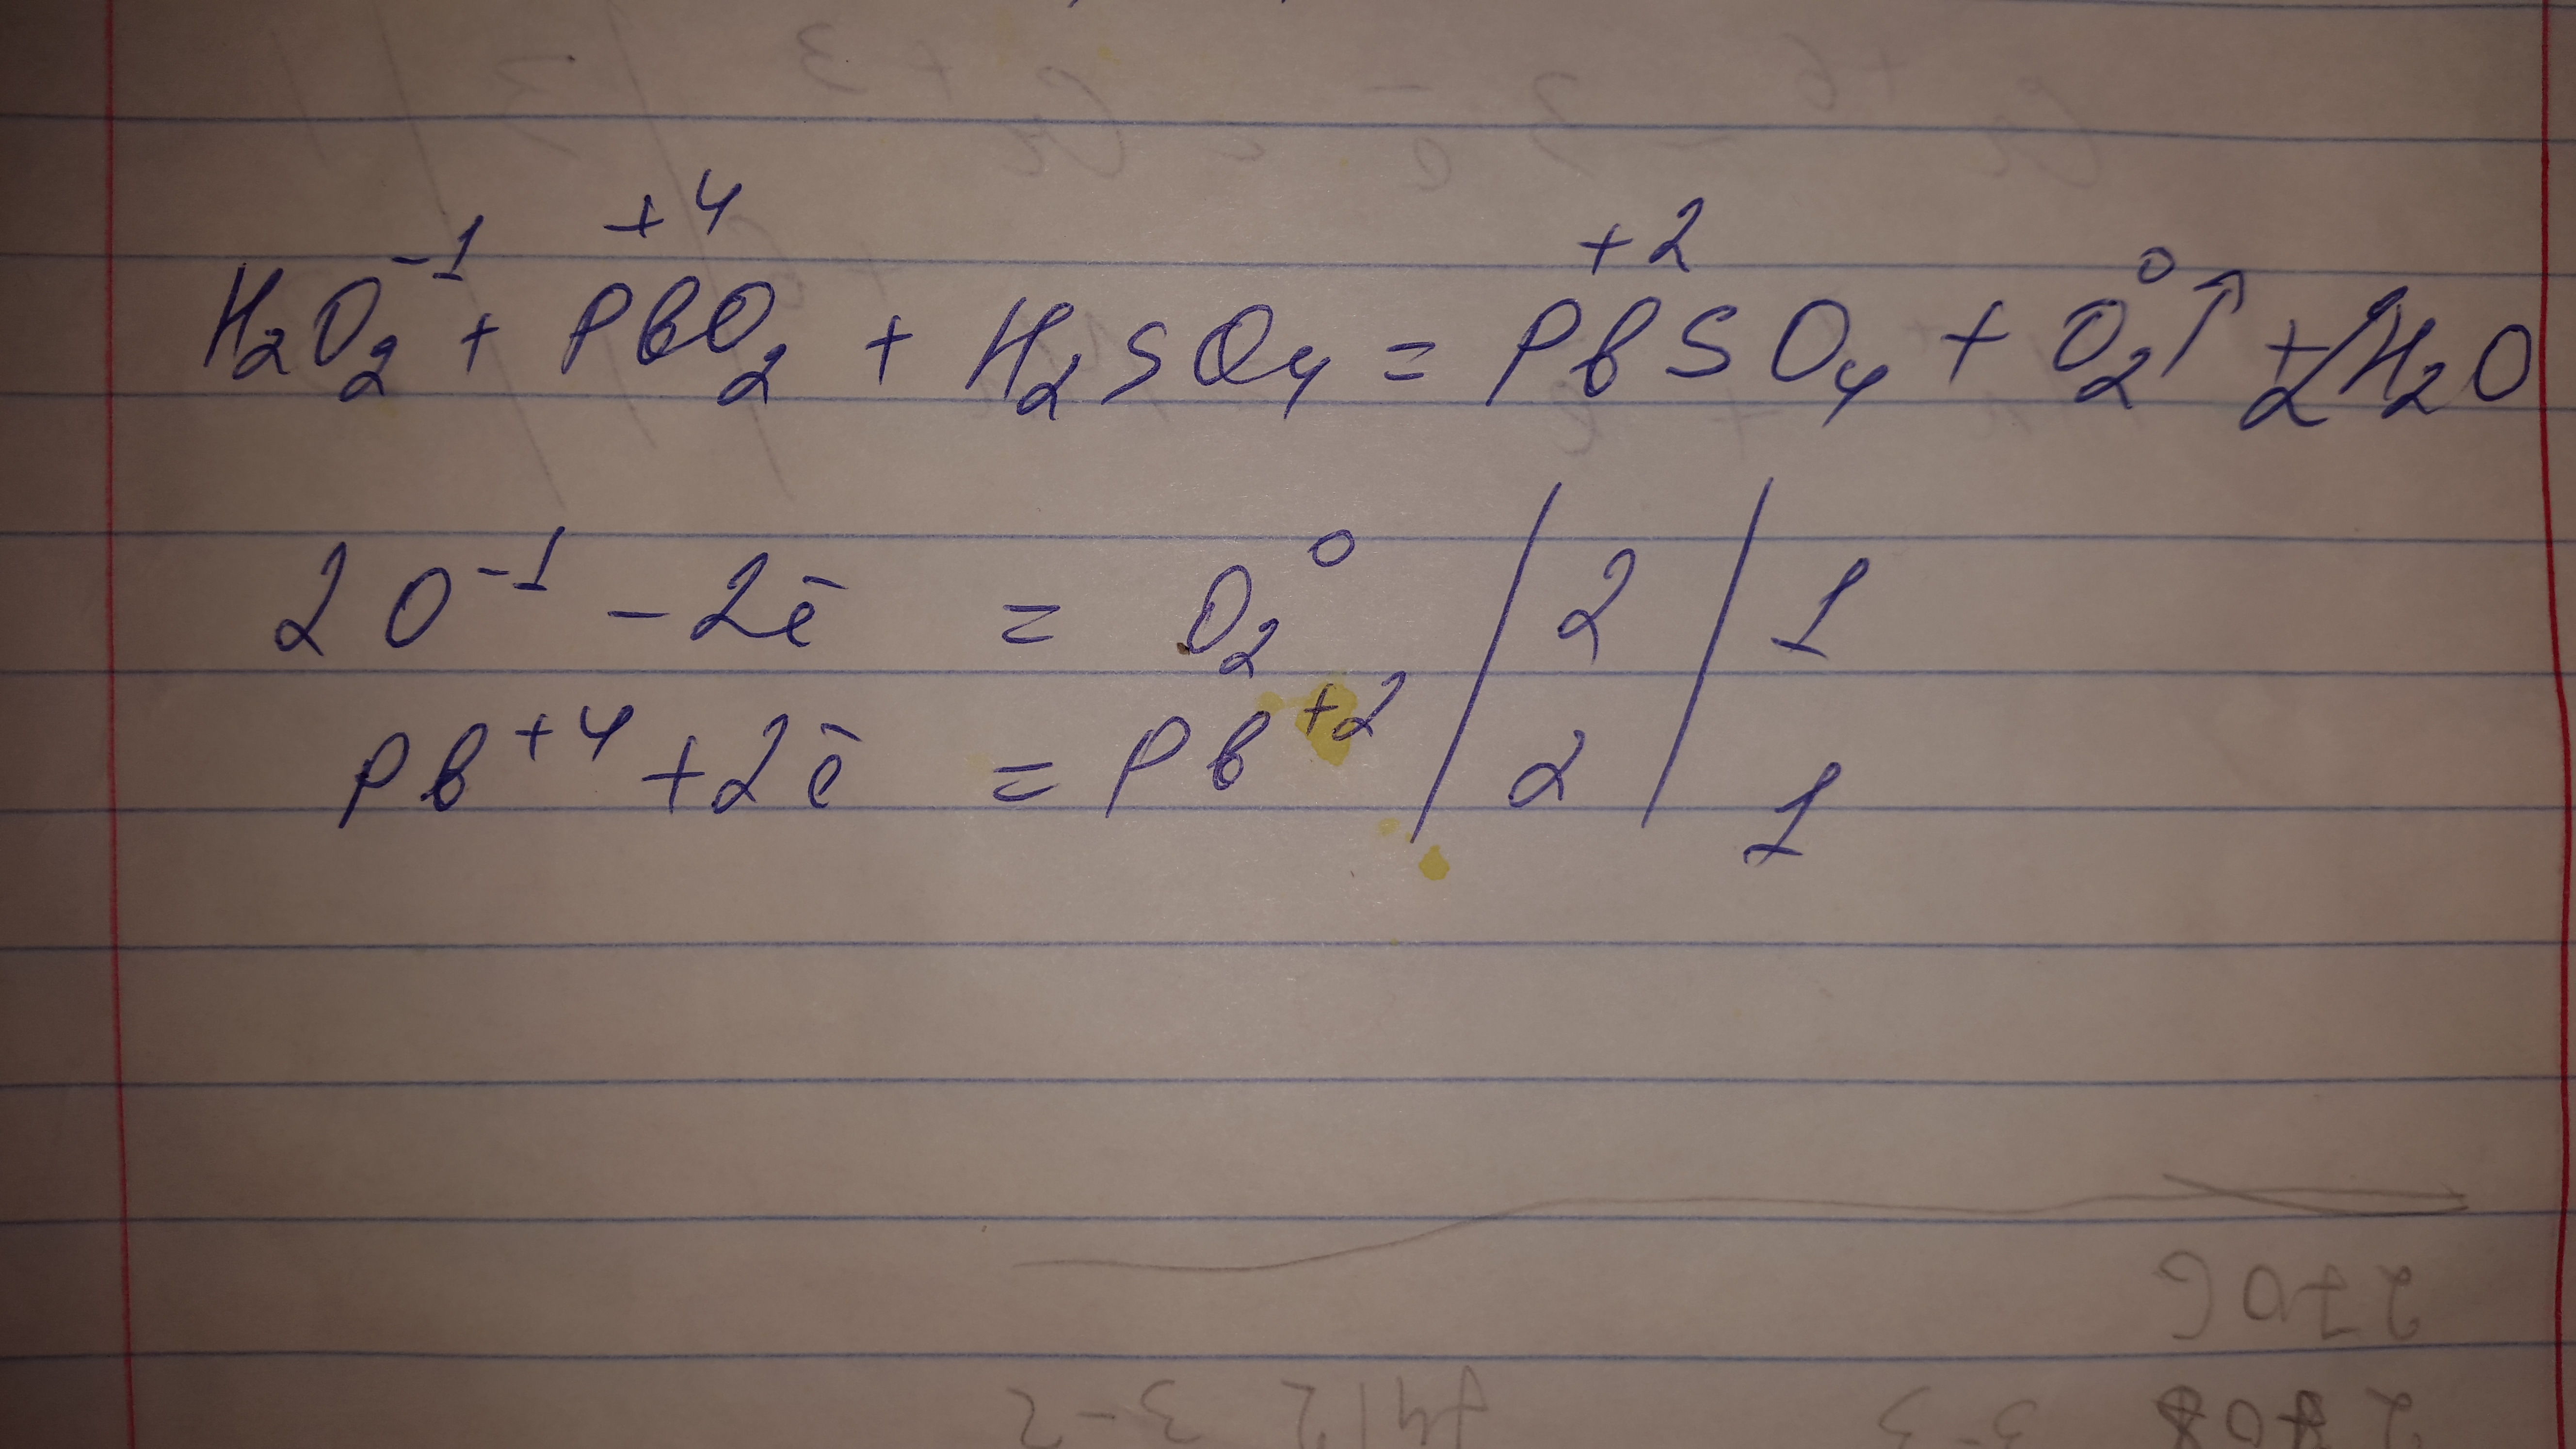 H₂O₂⁻¹ + Pb⁺⁴O₂ + H₂SO₄ = Pb⁺²SO₄ + O₂⁰↑ + 2H₂O
2O⁻¹ - 2ē = O₂⁰ | 2 | 1
Pb⁺⁴ + 2ē = Pb⁺² | 2 | 1